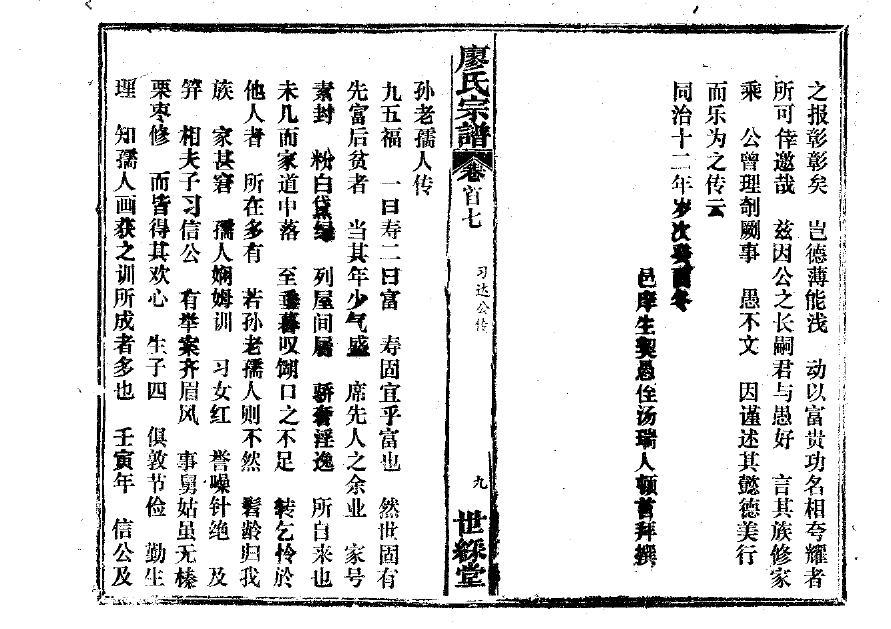 之报彰彰矣　岂德薄能浅　动以富贵功名相夸耀者
所可倖邀哉　兹因公之长嗣君与愚好　言其族修家
乘　公曾理剞劂事　愚不文　因谨述其懿德美行
而乐为之传云
同治十二年岁次癸酉冬
邑庠生契愚侄汤瑞人顿首拜撰
廖氏宗譜　卷首七　习达公传　九　世綵堂
孙老孺人传
九五福　一曰寿二曰富　寿固宜乎富也　然世固有
先富后贫者　当其年少气盛　席先人之余业　家号
素封　粉白黛绿　列屋间居　骄奢淫逸　所自来也
未几而家道中落　至垂暮叹餬口之不足　转乞怜於
他人者　所在多有　若孙老孺人则不然　髫龄归我
族　家甚窘　孺人娴姆训　习女红　誉噪针绝　及
笄　相夫子习信公　有举案齐眉风　事舅姑虽无榛
栗枣修　而皆得其欢心　生子四　俱敦节俭　勤生
理　知孺人画获之训所成者多也　壬寅年　信公及